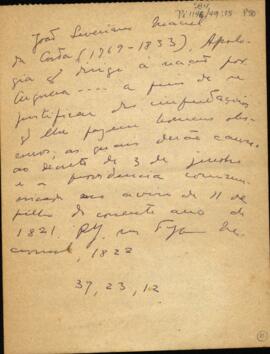 João Severiano Maciel
da Costa (1769-1833), Apolo-
gia q dirige à nação por-
tugueza .... a fim de se
justificar das imputações
q lhe fazem homens obs-
curos, as quais derão causa
ao decreto de 3 de junho
e a providencia commu-
nicada no aviso de 11 de
julho do corrente ano de
1821. RJ, na Typ. Na-
cional, 1822
37, 23, 12